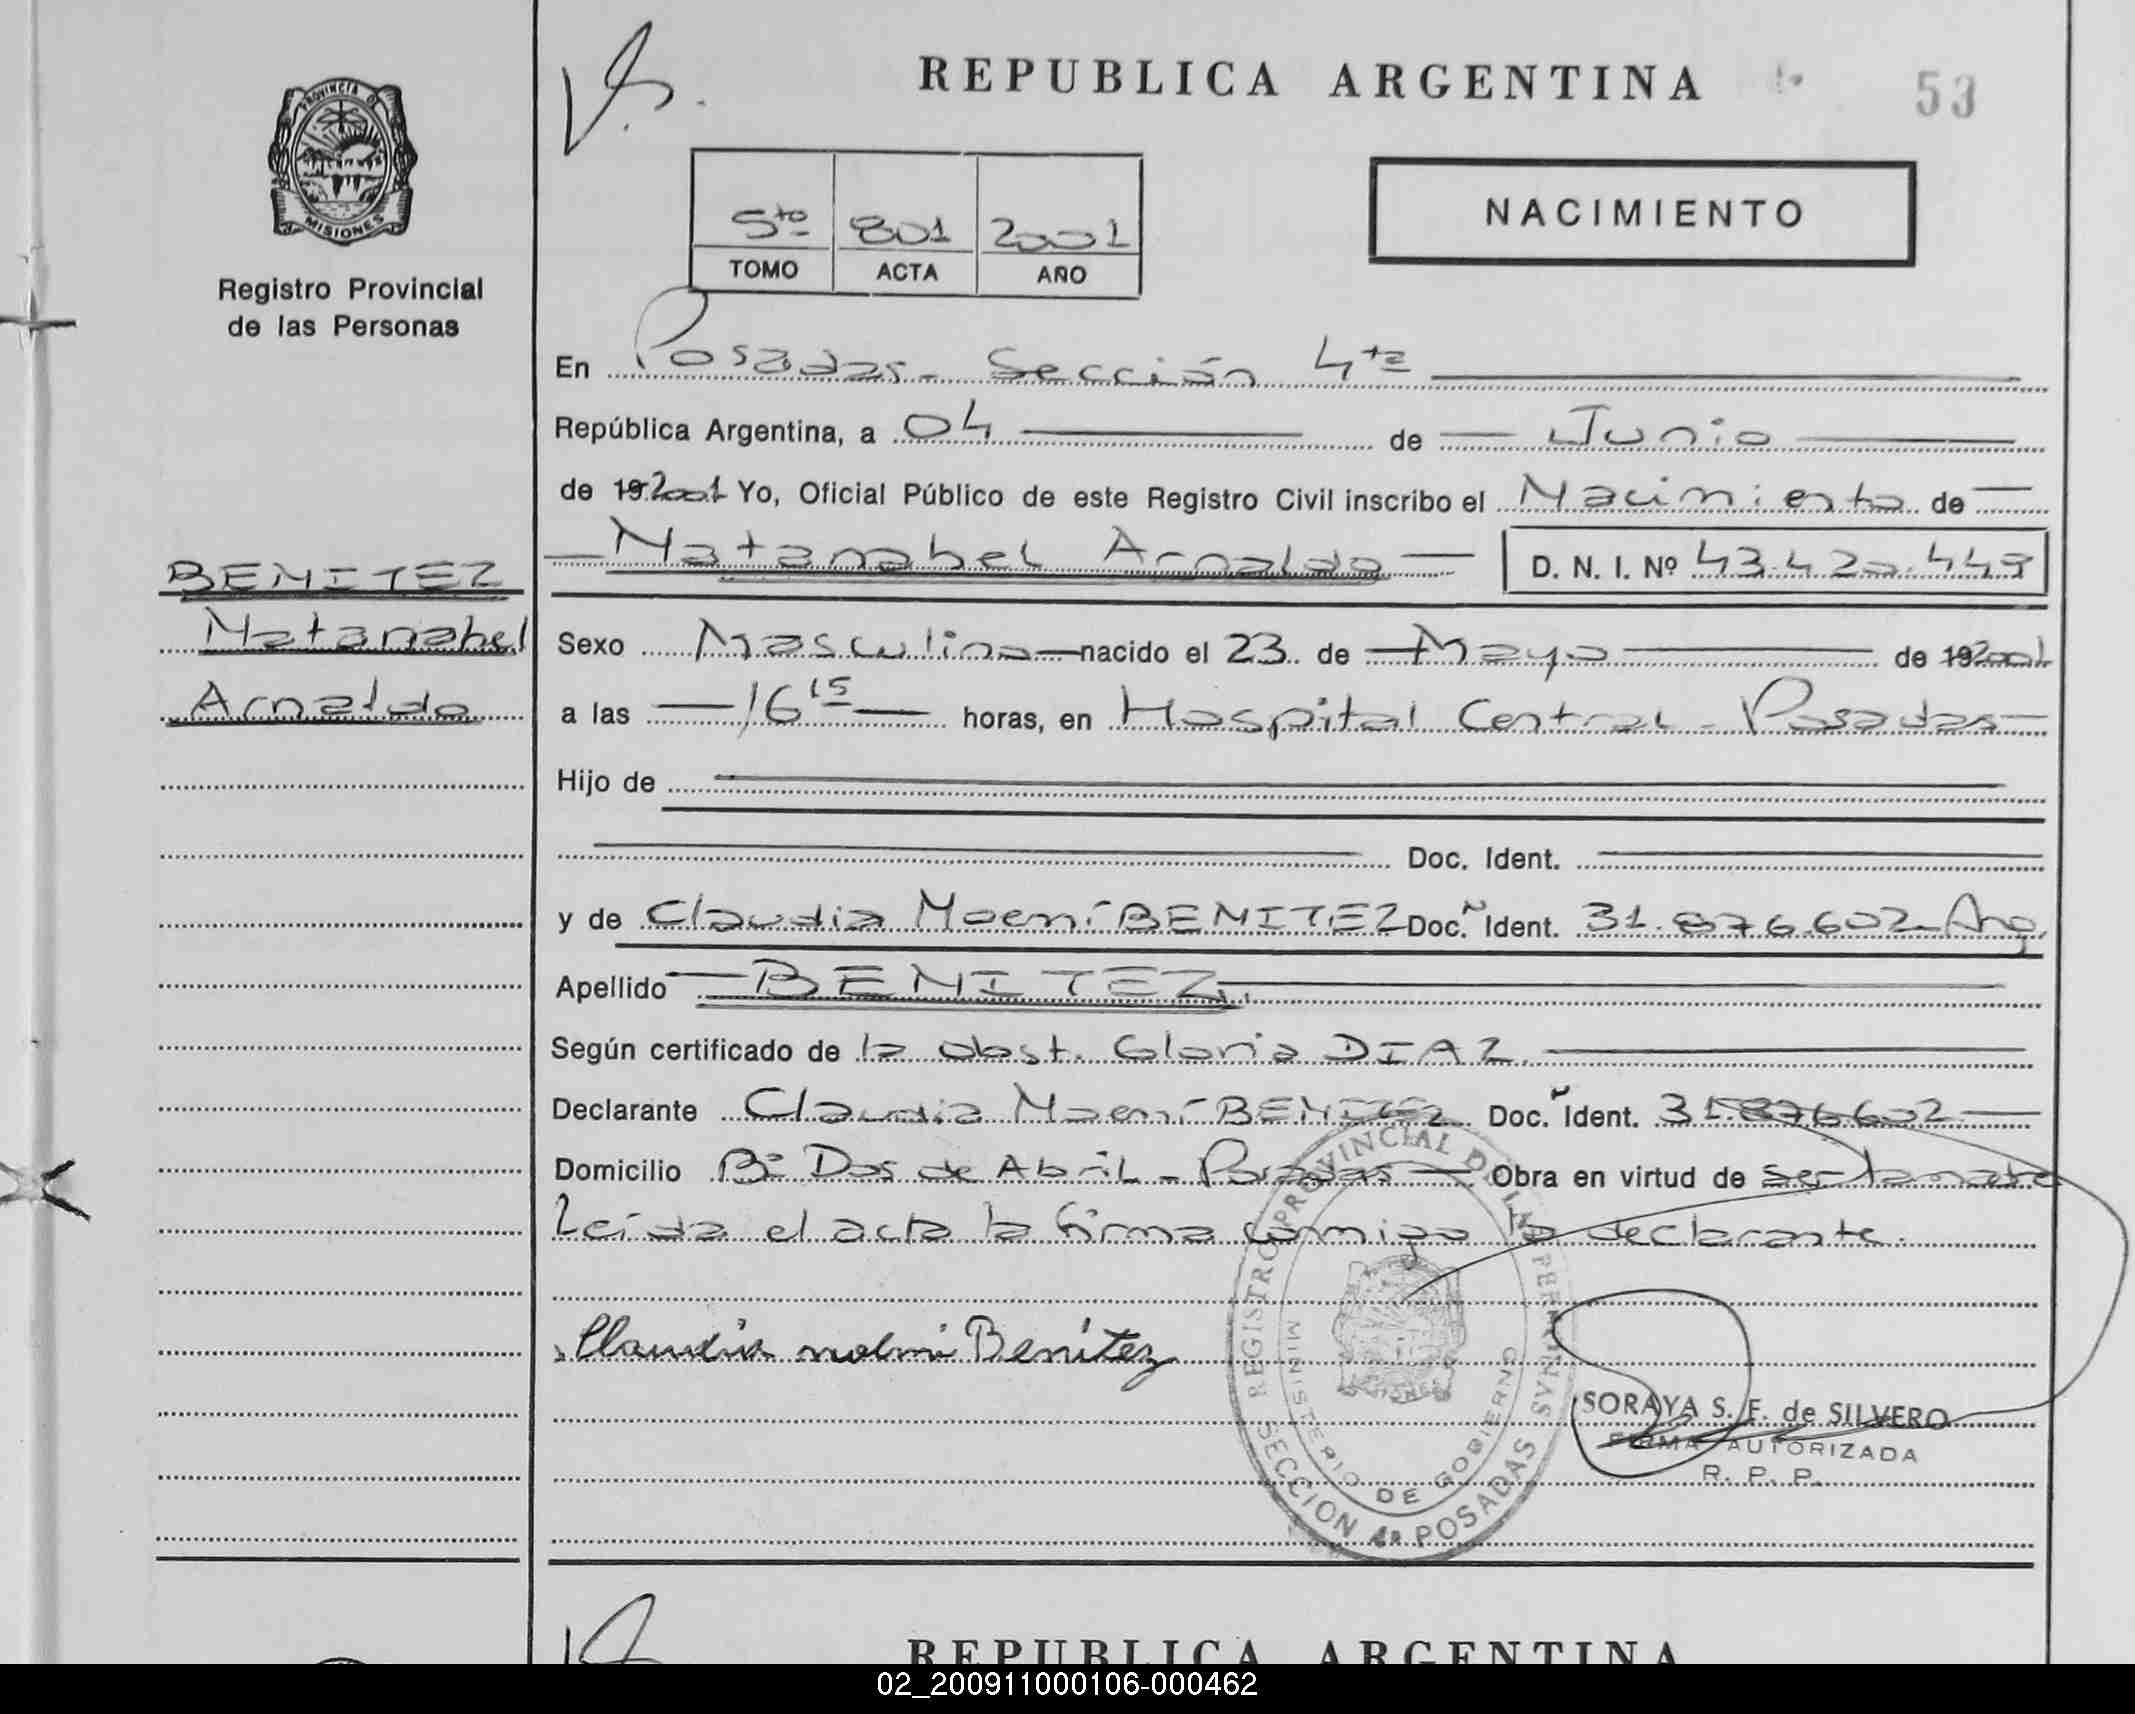 REPUBLICA ARGENTINA
53
PROVINCIA DE
MISIONES
Registro Provincial
de las Personas
5to 801 2001
TOMO ACTA AÑO
NACIMIENTO
En Posadas - Sección 4ta
República Argentina, a 04 de Junio
de 19 2001 Yo, Oficial Público de este Registro Civil inscribo el Nacimiento de
Natanahel Arnaldo D. N. I. Nº 43.420.449
BENITEZ
Natanahel
Arnaldo
Sexo Masculino nacido el 23 de Mayo de 19 2001
a las 16 15 horas, en Hospital Central - Posadas
Hijo de
Doc. Ident.
y de Claudia Noemí BENITEZ Doc. Ident. 31.876.602 - Arg.
Apellido BENITEZ.
Según certificado de la obst. Gloria DIAZ.
Declarante Claudia Noemí BENITEZ Doc. Ident. 31.876.602
Domicilio Bº Dos de Abril - Posadas Obra en virtud de ser la madre
Leída el acta la firma conmigo la declarante.
Claudia noemi Benítez
REGISTRO PROVINCIAL DE LAS PERSONAS
MINISTERIO DE GOBIERNO
SECCION 4a POSADAS
SORAYA S. F. de SILVERO
FIRMA AUTORIZADA
R. P. P.
REPUBLICA ARGENTINA
02_200911000106-000462